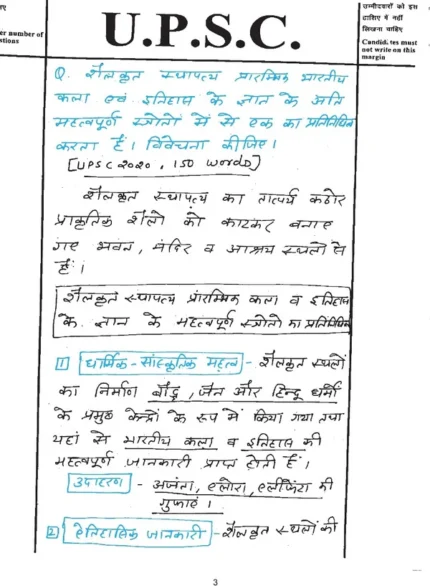 U.P.S.C.
er number of
stions
उम्मीदवारों को इस
हाशिए में नहीं
लिखना चाहिए
Candidates must
not write on this
margin
Q. शैलकृत स्थापत्य प्रारम्भिक भारतीय
कला एवं इतिहास के ज्ञान के अति
महत्वपूर्ण स्त्रोतों में से एक का प्रतिनिधित्व
करता है। विवेचना कीजिए।
[UPSC 2020, 150 words]
शैलकृत स्थापत्य का तात्पर्य कठोर
प्राकृतिक शैलो को काटकर बनाए
गए भवन, मंदिर व आश्रय स्थलों से
है।
शैलकृत स्थापत्य प्रारम्भिक कला व इतिहास
के ज्ञान के महत्वपूर्ण स्त्रोतों का प्रतिनिधित्व
1 धार्मिक-सांस्कृतिक महत्व - शैलकृत स्थलों
का निर्माण बौद्ध, जैन और हिन्दू धर्मों
के प्रमुख केन्द्रों के रूप में किया गया तथा
यहां से भारतीय कला व इतिहास की
महत्वपूर्ण जानकारी प्राप्त होती है।
उदाहरण - अजंता, एलोरा, एलीफेंटा की
गुफाएं।
2 ऐतिहासिक जानकारी - शैलकृत स्थलों की
3